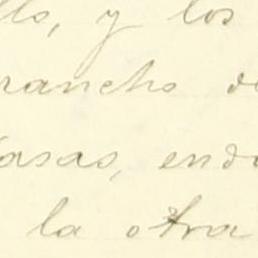 llo, y los
rancho de
casas, end
la otra